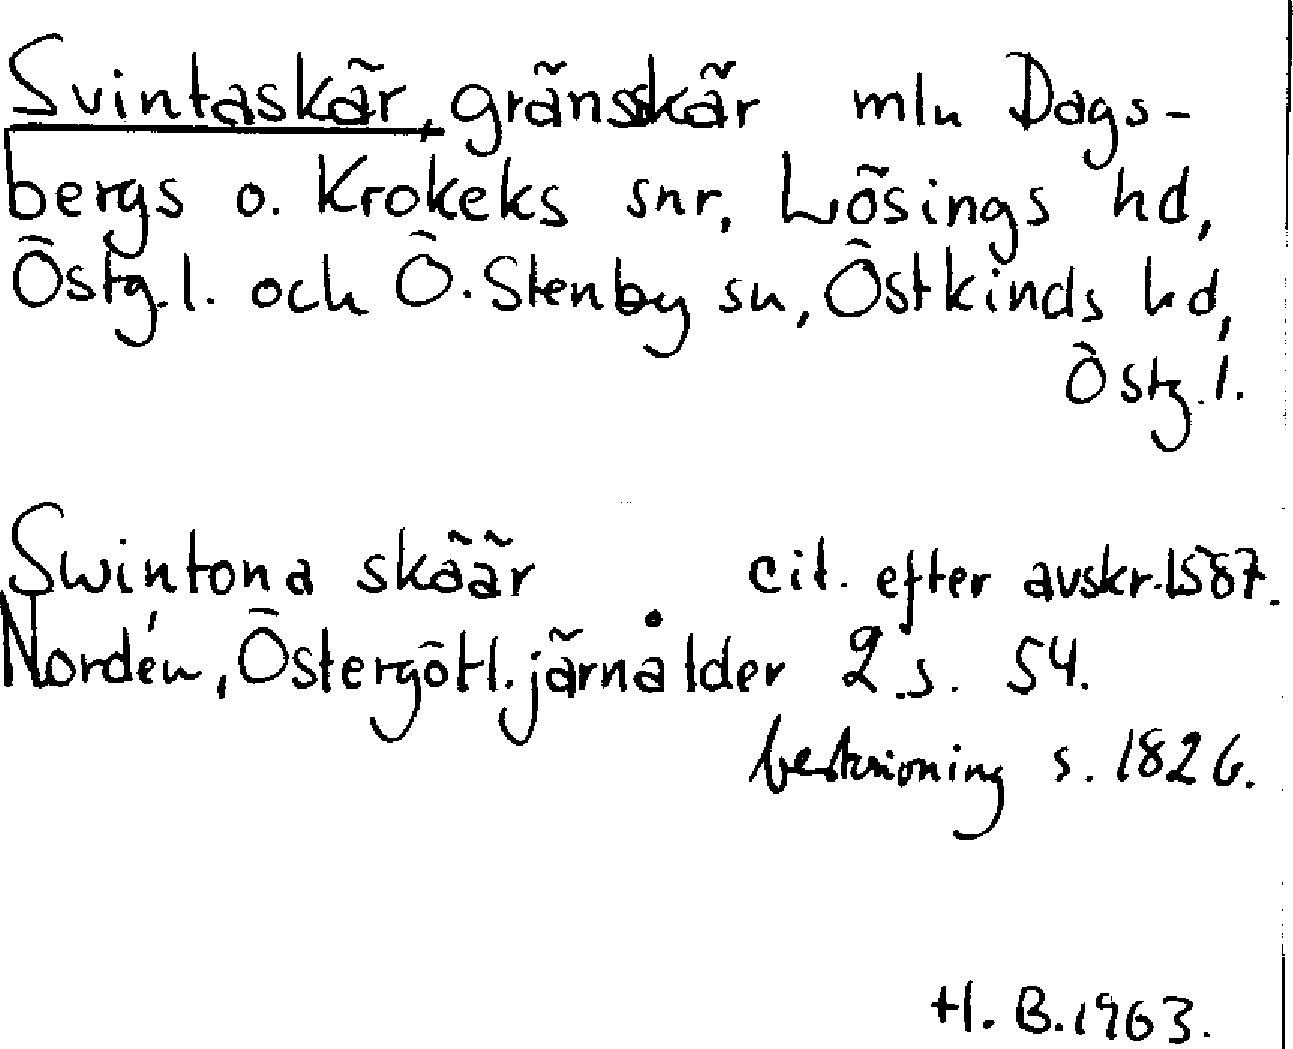 Svintaskär, gränsskär mln Dags-
bergs o. Krokeks snr, Lösings hd,
Östg.l. och Ö. Stenby sn, Östkinds hd,
Östg.l.
Swintona skäär cit. efter avskr. 1587.
Nordén, Östergötl. järnålder 2 s. 54.
beskrivning s. 1826.
H. B. 1963.